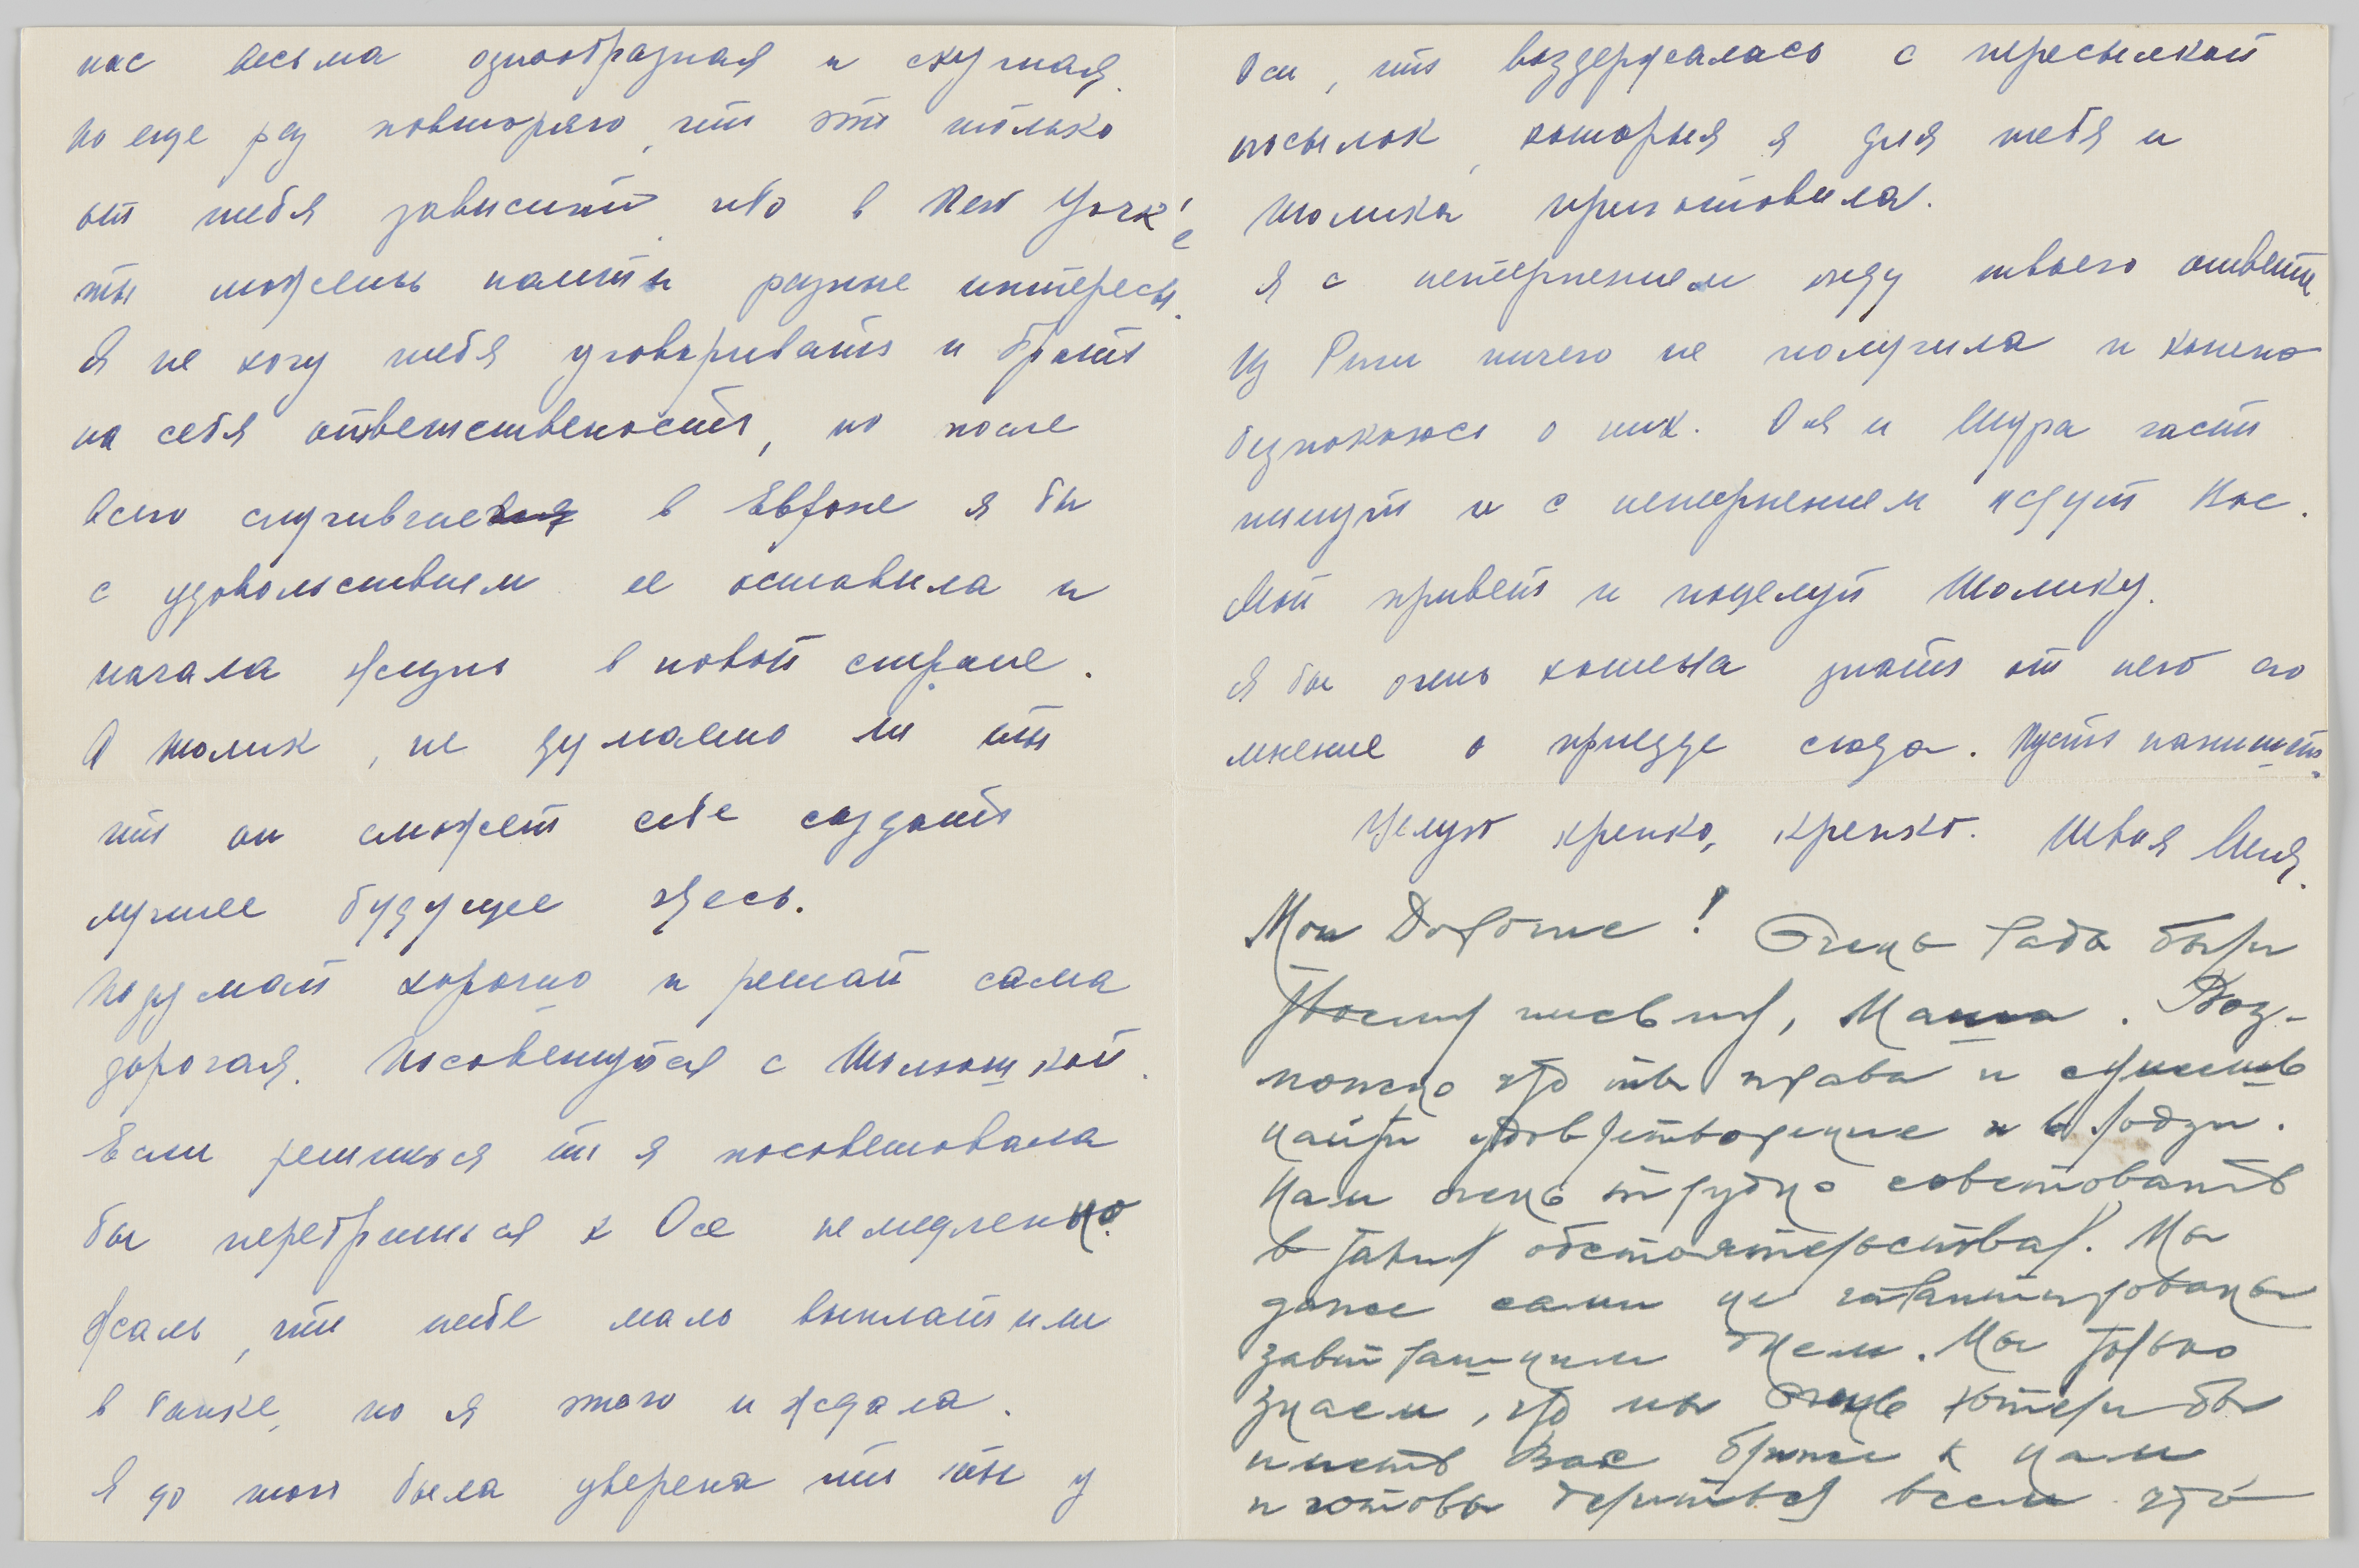 нас весьма однообразная и скучная.
Но еще раз повторяю, что это только
от тебя зависит ибо в New York'е
ты можешь найти разные интересы.
Я не хочу тебя уговаривать и брать
на себя ответственность, но после
всего случившегося в Европе я бы
с удовольствием ее оставила и
начала жизнь в новой стране.
А Толик, не думаешь ли ты
что он сможет себе создать
лучшее будущее здесь.
Подумай хорошо и решай сама
дорогая. Посоветуйся с Толюшкой.
Если решишься то я посоветовала
бы перебраться к Осе немедленно.
Жаль, что тебе мало выплатили
в банке, но я этого и ждала.
Я до того была уверена что ты у
Оси, что воздержалась с пересылкой
посылок, которыя я для тебя и
Толика приготовила.
Я с нетерпением жду твоего ответа.
Из Риги ничего не получила и конечно
безпокоюсь о них. Оля и Шура часто
пишут и с нетерпением ждут Вас.
Мой привет и поцелуй Толику.
Я бы очень хотела знать от него его
мнение о приезде сюда. Пусть напишет.
Целую крепко, крепко. Твоя
Мои Дорогие! Очень рады были
Твоему письму, Маша. Воз-
можно что ты права и сумеешь
найти удовлетворение и в Лодзи.
Нам очень трудно советовать
в таких обстоятельствах. Мы
даже сами не гарантированы
завтрашним днем. Мы только
знаем, что мы очень хотели бы
иметь Вас ближе к нам
и готовы делиться всем что